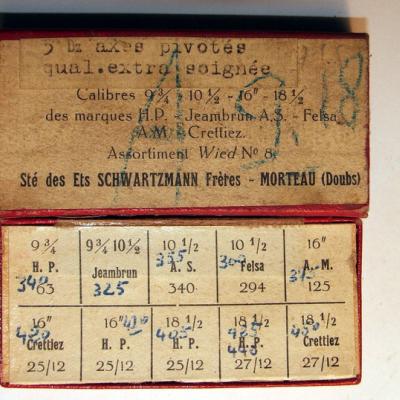 5 Dz axes pivotés
qual.extra soignée
Calibres 9 ¾ - 10 ½ - 16" - 18 ½
des marques H.P. - Jeambrun A.S. - Felsa
A.M. - Crettiez.
Assortiment Wied Nº 8.
Sté des Ets SCHWARTZMANN Frères - MORTEAU (Doubs)
9 ¾ 9 ¾ 10 ½ 10 1/2 10 1/2 16"
H. P. Jeambrun A. S. Felsa A. M.
63 325 340 294 125
16" 16" 18 1/2 18 1/2 18 1/2
Crettiez H. P. H. P. H. P. Crettiez
25/12 25/12 25/12 27/12 27/12